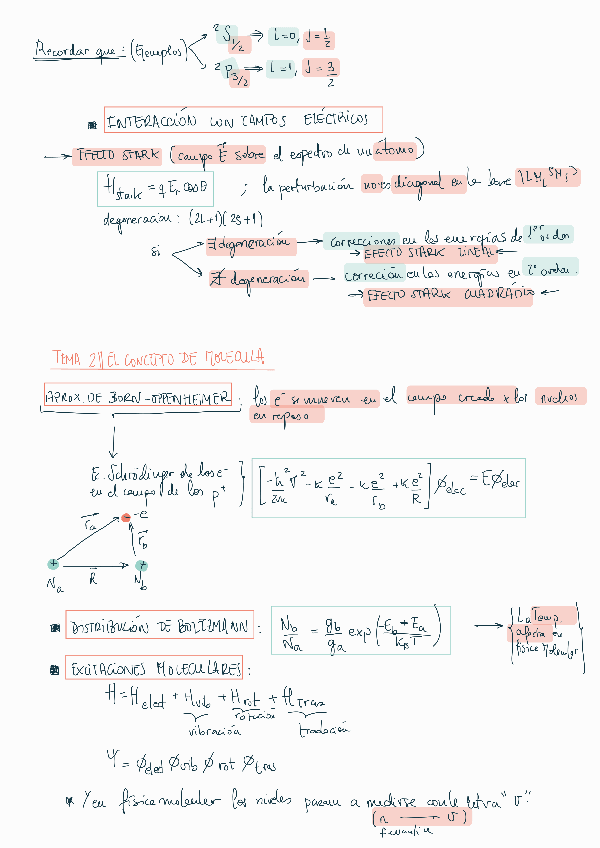 Recordar que: (Ejemplos) ²S₁/₂ → L=0, J=1/2
²P₃/₂ → L=1, J=3/2
INTERACCIÓN CON CAMPOS ELÉCTRICOS
→ EFECTO STARK (campo E⃗ sobre el espectro de un átomo)
H stark = q E r cosθ ; la perturbación no es diagonal en la base |L M_L S M_S>
degeneración: (2L+1)(2S+1)
si ∃ degeneración → correcciones en las energías de 1er orden
→ EFECTO STARK LINEAL ←
∄ degeneración → corrección en las energías en 2º orden.
→ EFECTO STARK CUADRÁTICO ←
TEMA 2|| EL CONCEPTO DE MOLÉCULA
APROX. DE BORN-OPPENHEIMER: los e⁻ se mueven en el campo creado x los núcleos
en reposo
E. Schrödinger de los e⁻
en el campo de los p⁺
[-ħ²/2m ∇² - k e²/r_a - k e²/r_b + k e²/R] ϕelec = E ϕelec
-e
r⃗a
r⃗b
+ R⃗ +
Na Nb
DISTRIBUCIÓN DE BOLTZMANN: Nb/Na = gb/ga exp(-Eb+Ea/KB T) → La Temp.
afecta en
física molecular
EXCITACIONES MOLECULARES:
H = Helect + Hvib + Hrot + Htras
rotación
vibración traslación
Ψ = ϕelect ϕvib ϕrot ϕtras
* Y en física molecular los niveles pasan a medirse con la letra "v".
(n → v)